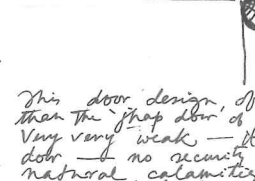 This door design, of
than the 'jhap door' of
Very very weak — It
door — no security
natural calamities